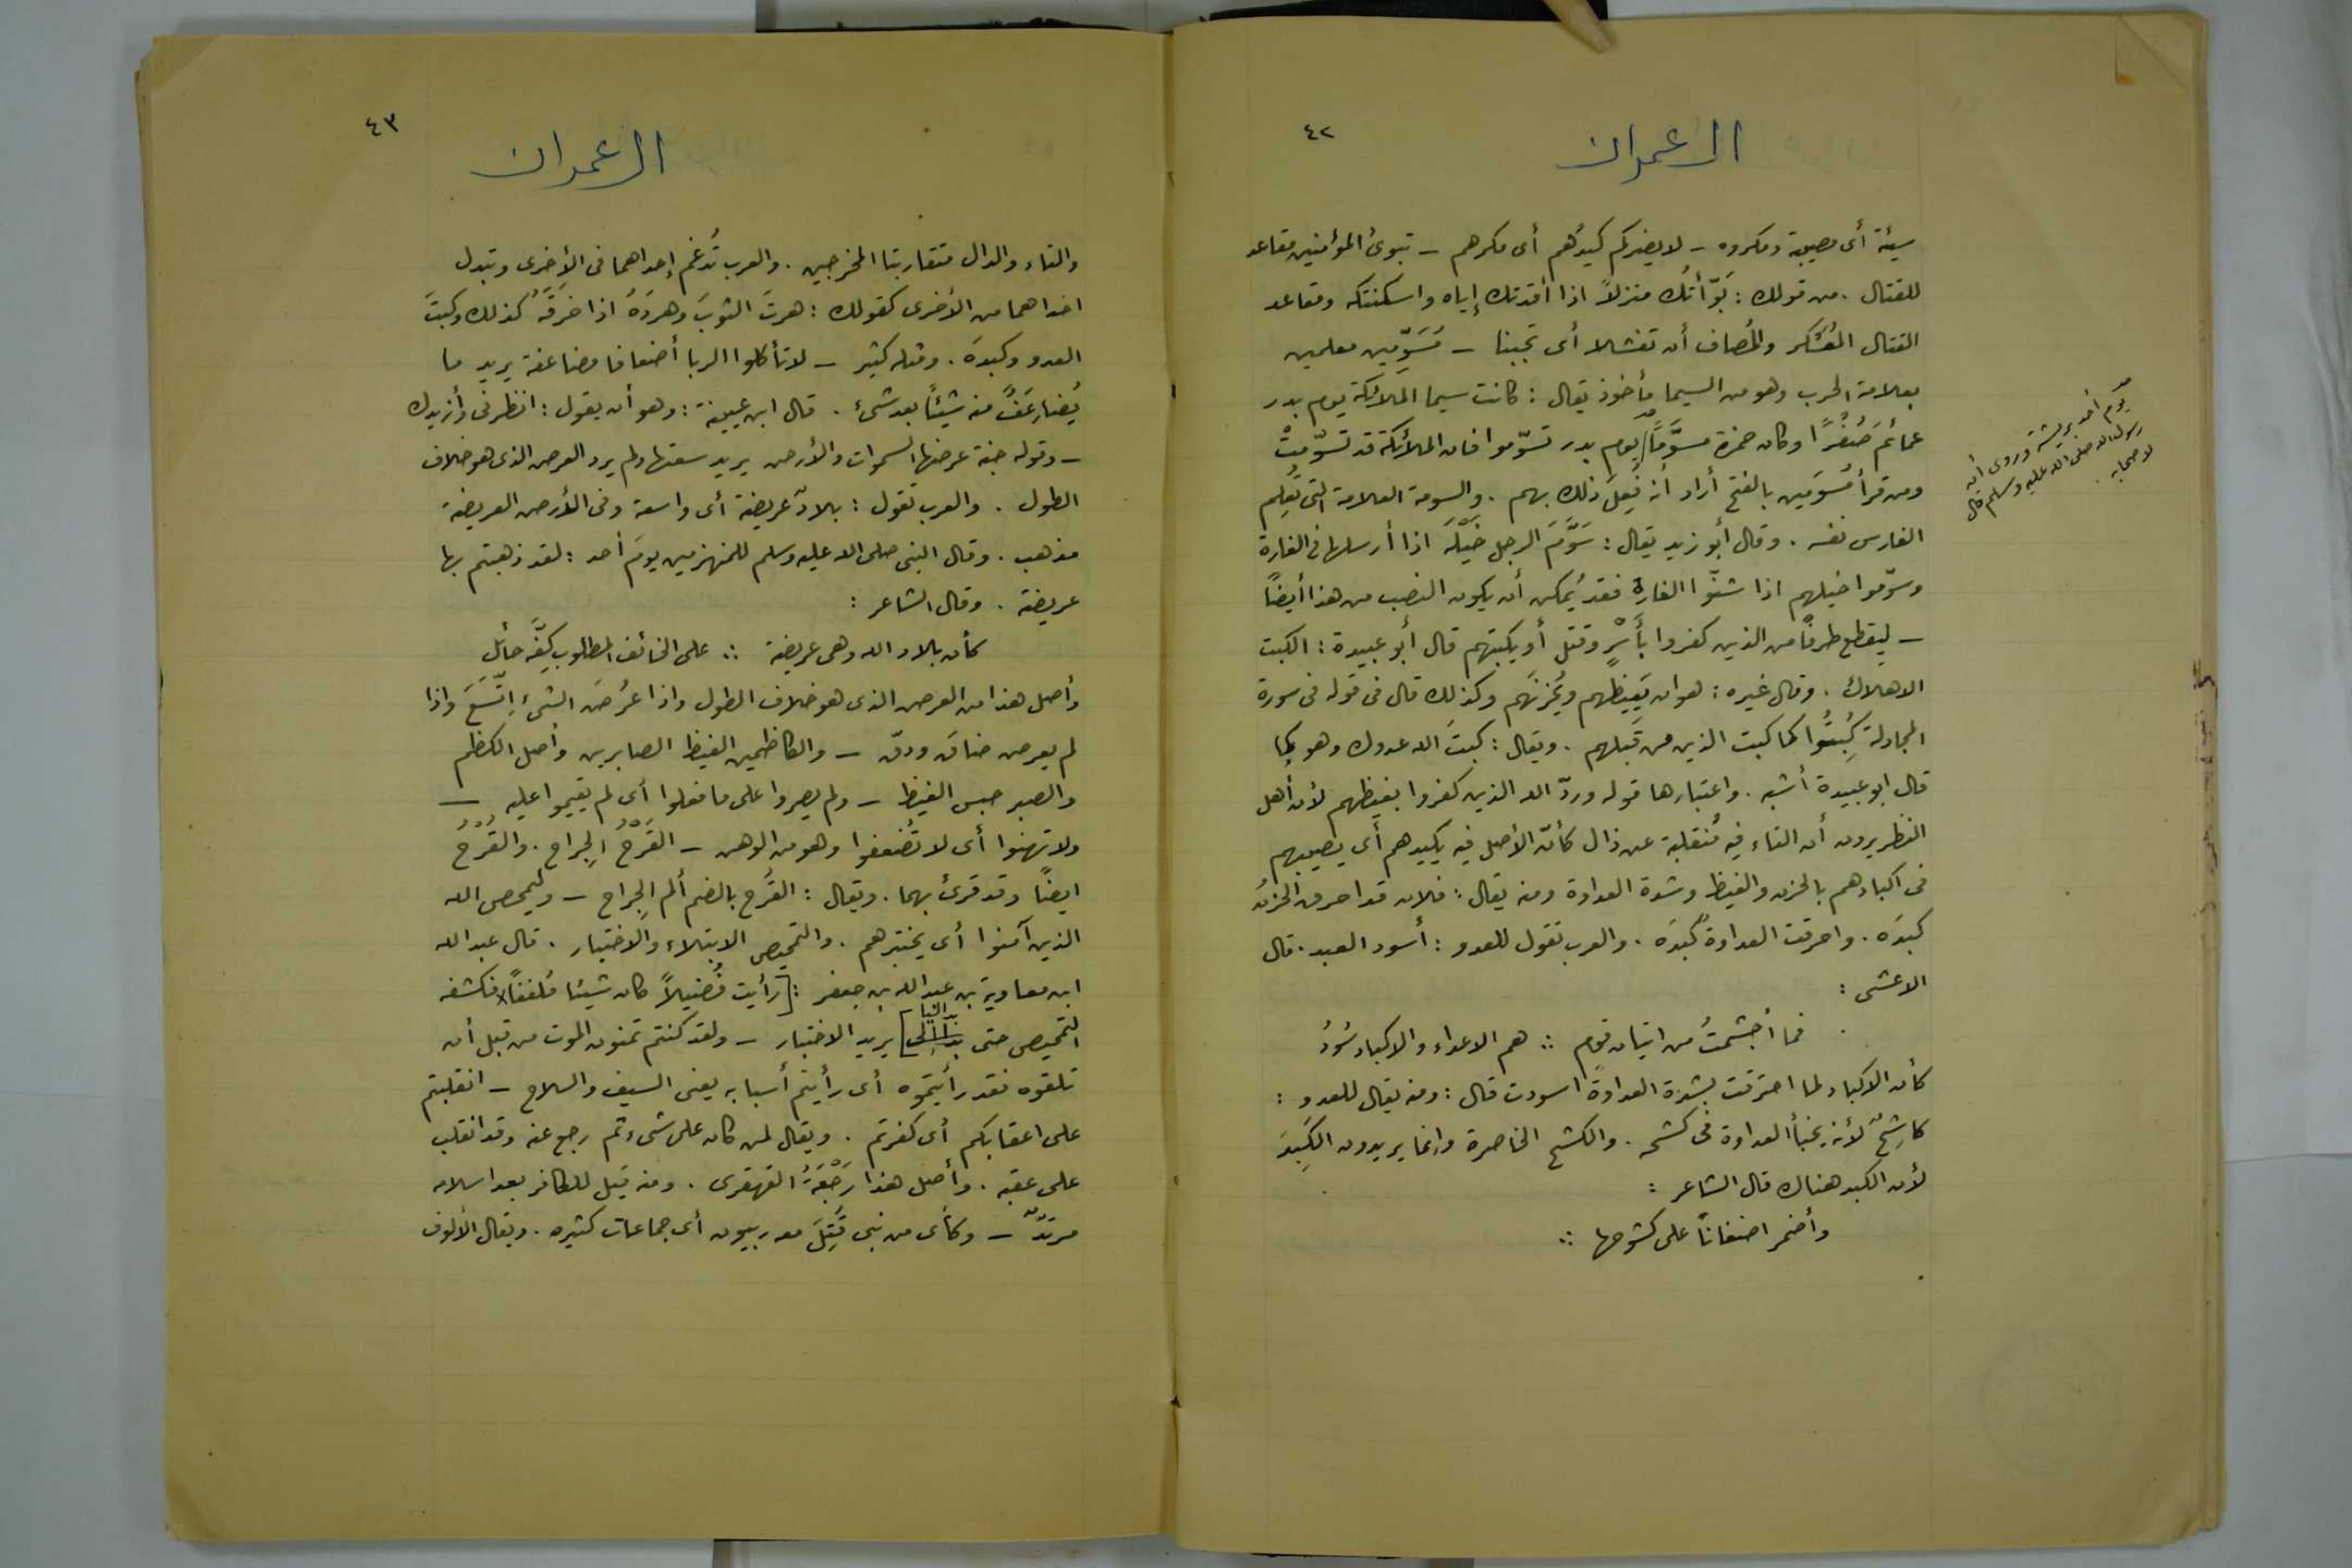 ٤٢
ال عمران
سيئة أى مصيبة ومكروه - لا يضركم كيدُهم أى مكرهم - تبوئ المؤمنين مقاعد
للقتال . من قولك : بَوّأتُك منزلاً اذا افدتك إياه واسكنتكه ومقاعد
القتال المُعسْكر والمُصاف أن تفشلا أى تجبنا - مُسَوِّمين معلمين
بعلامة الحرب وهو من السيما مأخوذ يقال : كانت سيما الملائكة يوم بدر
عمائمَ صُفْرًا وكان حمزة مسوَّمًا / يوم بدر تسوّموا فان الملائكة قد تسوّمتْ
يوم أحد بريشة وروى أن
رسول الله صلى الله عليه وسلم قال
لاصحابه .
ومن قرأ مُسَوَمين بالفتح أراد أنه فُعِلَ ذلك بهم . والسومة العلامة التى تُعلِم
الفارس نفسه . وقال أبو زيد يقال : سَوَّمَ الرجل خَيْلَه اذا أرسلها فى الغارة
وسوّموا خيلهم اذا شنّوا الغارة فقد يُمكن أن يكون النصب من هذا أيضًا
- لِيقطع طرفًا من الذين كفروا بأَسْرٍ وقتل أو يكبتهم قال أبو عبيدة : الكبت
الاهلاك . وقال غيره : هو ان يَغيظهم ويُحزنَهم وكذلك قال فى قوله فى سورة
المجادلة كُبِتُوا كما كبت الذين من قَبلهم . ويقال : كبتَ الله عدوك وهو بما
قال ابو عبيدة أشبه . واعتبارها قوله وردّ الله الذين كفروا بغيظهم لأن أهل
النظر يرون أن التاء فيه مُنقلبة عن دال كأنّ الأصل فيه يكبدهم أى يصيبهم
فى اكبادهم بالحزن والغيظ وشدة العداوة ومنه يقال : فلان قد احرق الحزنُ
كبدَه . واحرقت العداوةُ كبدَه . والعرب تقول للعدو : أسود الكبد . قال
الاعشى :
فما أُجشمتُ من اتيان قوم ∴ هم الاعداء والاكباد سُودُ
كأن الاكباد لما احترقت بشدة العداوة اسودت قال : ومنه يقال للعدو :
كاشِحٌ لأنه يخبأ العداوة فى كشحه . والكشح الخاصرة وانما يريدون الكَبِدَ
لأن الكبد هناك قال الشاعر :
وأضمر اضغانًا على كشوحها ∴
٤٣
ال عمران
والتاء والدال متقاربتا المخرجين . والعرب تُدغم إحداهما فى الأخرى وتبدل
احداهما من الأخرى كقولك : هرتَ الثوبَ وهردَهُ اذا خرَقَهُ كذلك وكبتَ
العدو وكبدَه . ومثله كثير - لا تأكلوا الربا أضعافا مضاعفة يريد ما
يُضاعَفُ منه شيئًا بعد شئ . قال ابن عيينة : وهو أن يقول : انظرنى وأزيدك
- وقوله جنة عرضها السموات والأرض يريد سعتها ولم يرد العرض الذى هو خلاف
الطول . والعرب تقول : بلادٌ عريضة أى واسعة وفى الأرض العريضة
مذهب . وقال النبى صلى الله عليه وسلم للمنهزمين يومَ أحد : لقد ذهبتم بها
عريضة . وقال الشاعر :
كأن بلاد الله وهى عريضة ∴ على الخائف المطلوب كِفَّه حائل
وأصل هذا من العرض الذى هو خلاف الطول واذا عرُضَ الشئ اتّسَعَ واذا
لم يعرض ضاقَ ودقّ - والكاظمين الغيظ الصابرين وأصل الكظم
والصبر حبس الغيظ - ولم يصروا على ما فعلوا أى لم يقيموا عليه -
ولا تهنوا أى لا تَضعفوا وهو من الوهن - القَرْحُ الجِراح . والقُرْحُ
ايضًا وقد قرئ بهما . ويقال : القُرح بالضم ألم الجِراح - وليمحص الله
الذين آمنوا أى يختبرهم . والتمحيص الابتلاء والاختبار . قال عبد الله
ابن معاوية بن عبد الله بن جعفر : [ رأيت فُضيلاً كان شيئا مُلففًا فكشفه
التمحيص حتى بدا ليا ] يريد الاختبار - ولقد كنتم تمنون الموت من قبل أن
تلقوه فقد رأيتموه أى رأيتم أسبابه يعنى السيف والسلاح - انقلبتم
على اعقابكم أى كفرتم . ويقال لمن كان على شىء ثم رجع عنه وقد انقلب
على عقبه . وأصل هذا رَجْعَةُ القهقرى . ومنه قيل للكافر بعد اسلامه
مرتدٌّ - وكأى من نبى قُتِلَ معه ربيون أى جماعات كثيره . ويقال الألوف